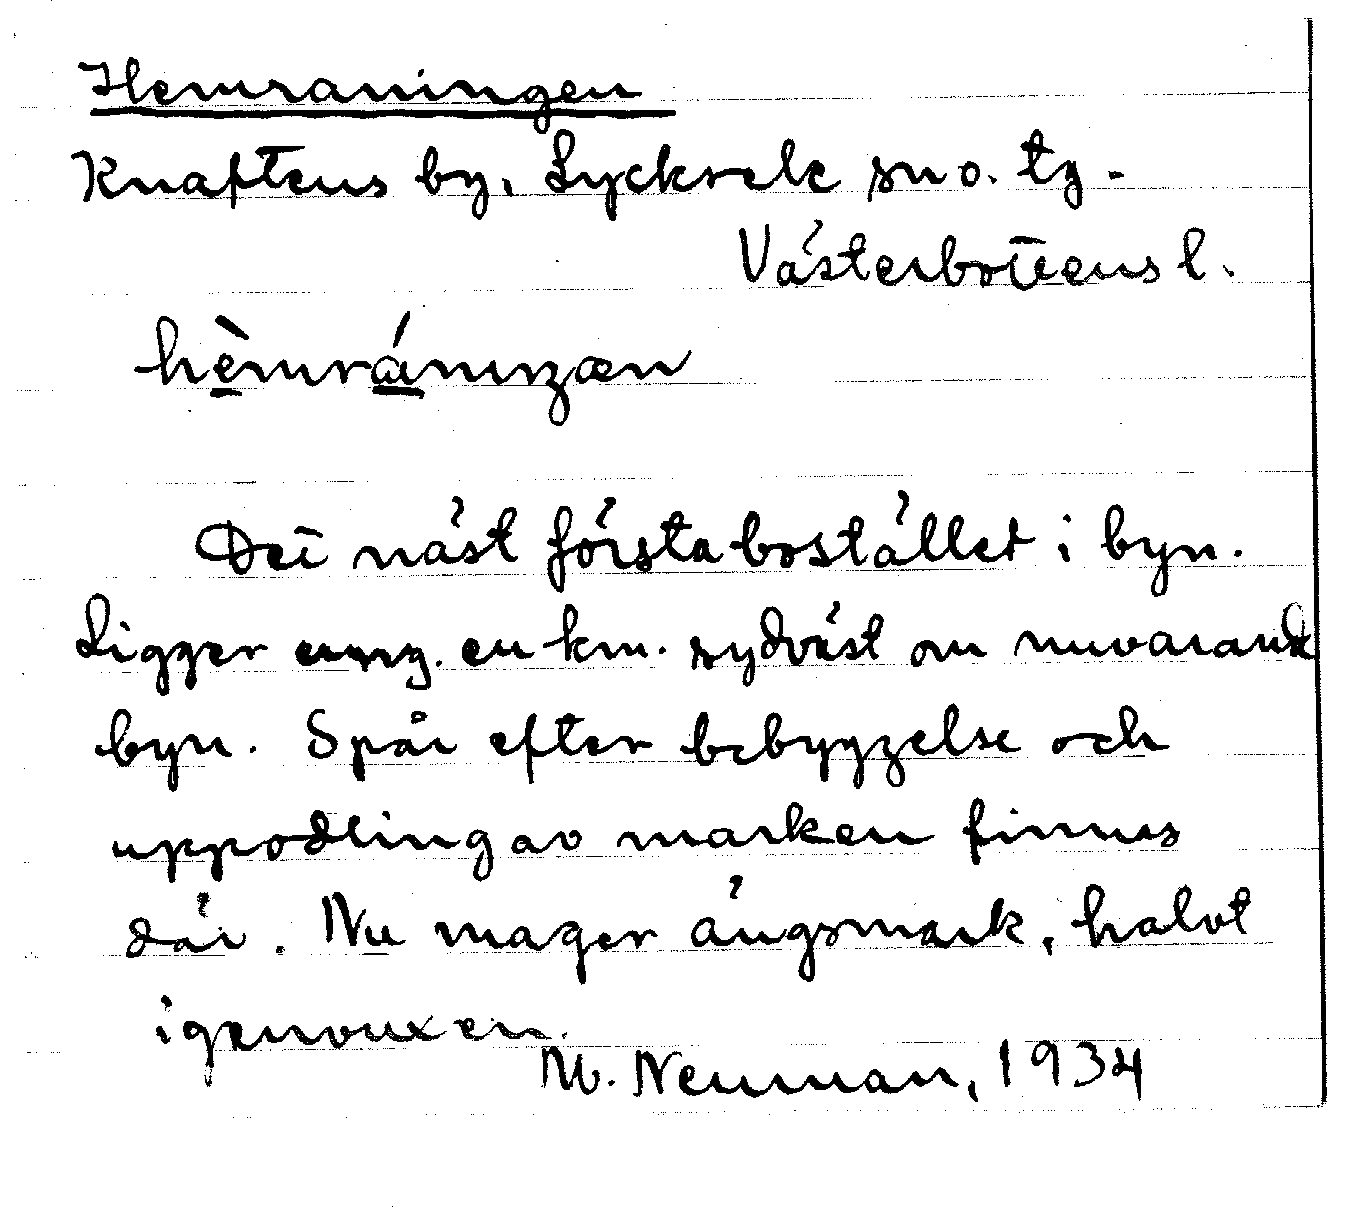 Hemraningen
Knaftens by, Lycksele sn o. tg.
Västerbottens l.
Det näst första bostället i byn.
Ligger ung. en km. sydväst om nuvarande
byn. Spår efter bebyggelse och
uppodling av marken finnas
där. Nu mager ängsmark, halvt
igenvuxen.
M. Neuman, 1934